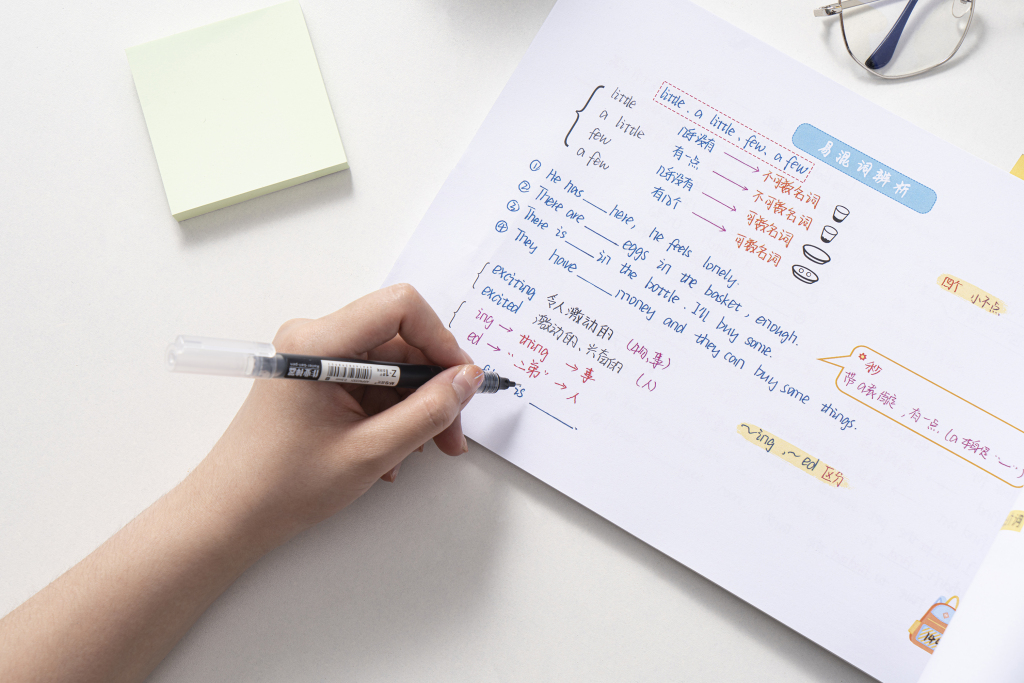 易混词辨析
little、a little、few、a few:
little 几乎没有 → 不可数名词
a little 有一点 → 不可数名词
few 几乎没有 → 可数名词
a few 有几个 → 可数名词
① He has ___ here, he feels lonely.
② There are ___ eggs in the basket, enough.
③ There is ___ in the bottle. I'll buy some.
④ They have ___ money and they can buy some things.
exciting 令人激动的 (物,事)
excited 激动的、兴奋的 (人)
ing → thing → 事
ed → "二弟" → 人
is ___
四个 小不点
秒
带a表肯定,有一点
~ing,~ed 区分